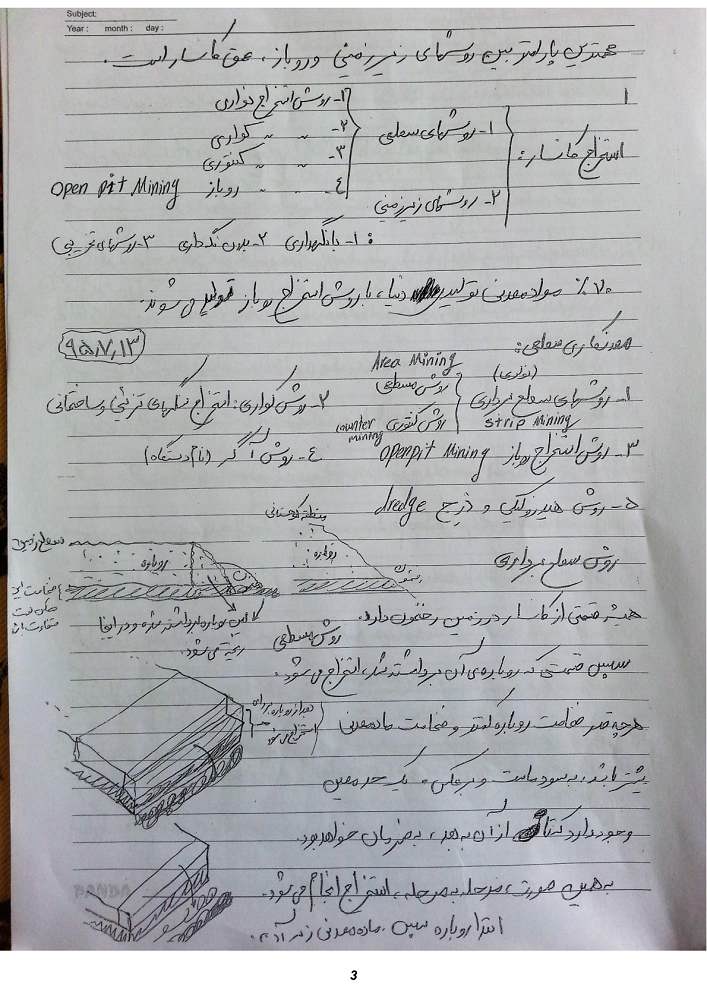 Subject:
Year : month : day :
مهمترین پارامتر بین روشهای زیرزمینی و روباز، عمق کانسار است.
استخراج کانسار:
۱- روشهای سطحی
۱- روش استخراج نواری
۲- " " کواری
۳- " " کنتوری
۴- " " روباز Open pit Mining
۲- روشهای زیرزمینی
: ۱- بانگهداری ۲- بدون نگهداری ۳- روشهای تخریبی
۷۰٪ مواد معدنی تولیدی دنیا، با روش استخراج روباز تولید می شوند.
۹۵،۷،۱۳
معدنکاری سطحی:
۱- روشهای سطح برداری (نواری) strip Mining
Area Mining روش مسطحی
روش کنتوری counter mining
۲- روش کواری: استخراج سنگهای تزئینی و ساختمانی
۳- روش استخراج روباز openpit Mining ۴- روش آگر (نام دستگاه)
۵- روش هیدرولیکی و درج dredge
روش سطح برداری
منطقه کوهستانی
روباره
سطح زمین
روباره
ضخامت این
متفاوت است
این روباره برداشته شده و در اینجا
ریخته می شود.
روش مسطحی
همیشه قسمتی از کانسار در زمین رخنمون دارد.
سپس قسمتی که روباره‌ی آن برداشته شد، استخراج می شود.
بعد از روباره برداری
استخراج می شود
هرچه قدر ضخامت روباره کمتر و ضخامت ماده معدنی
بیشتر باشد، به سود ماست و برعکس. یک حد معین
وجود دارد که تا از آن به بعد، به ضرمان خواهد بود.
به همین صورت، مرحله به مرحله، استخراج انجام می شود.
ابتدا روباره سپس ماده معدنی زیر آن.
PANDA
3